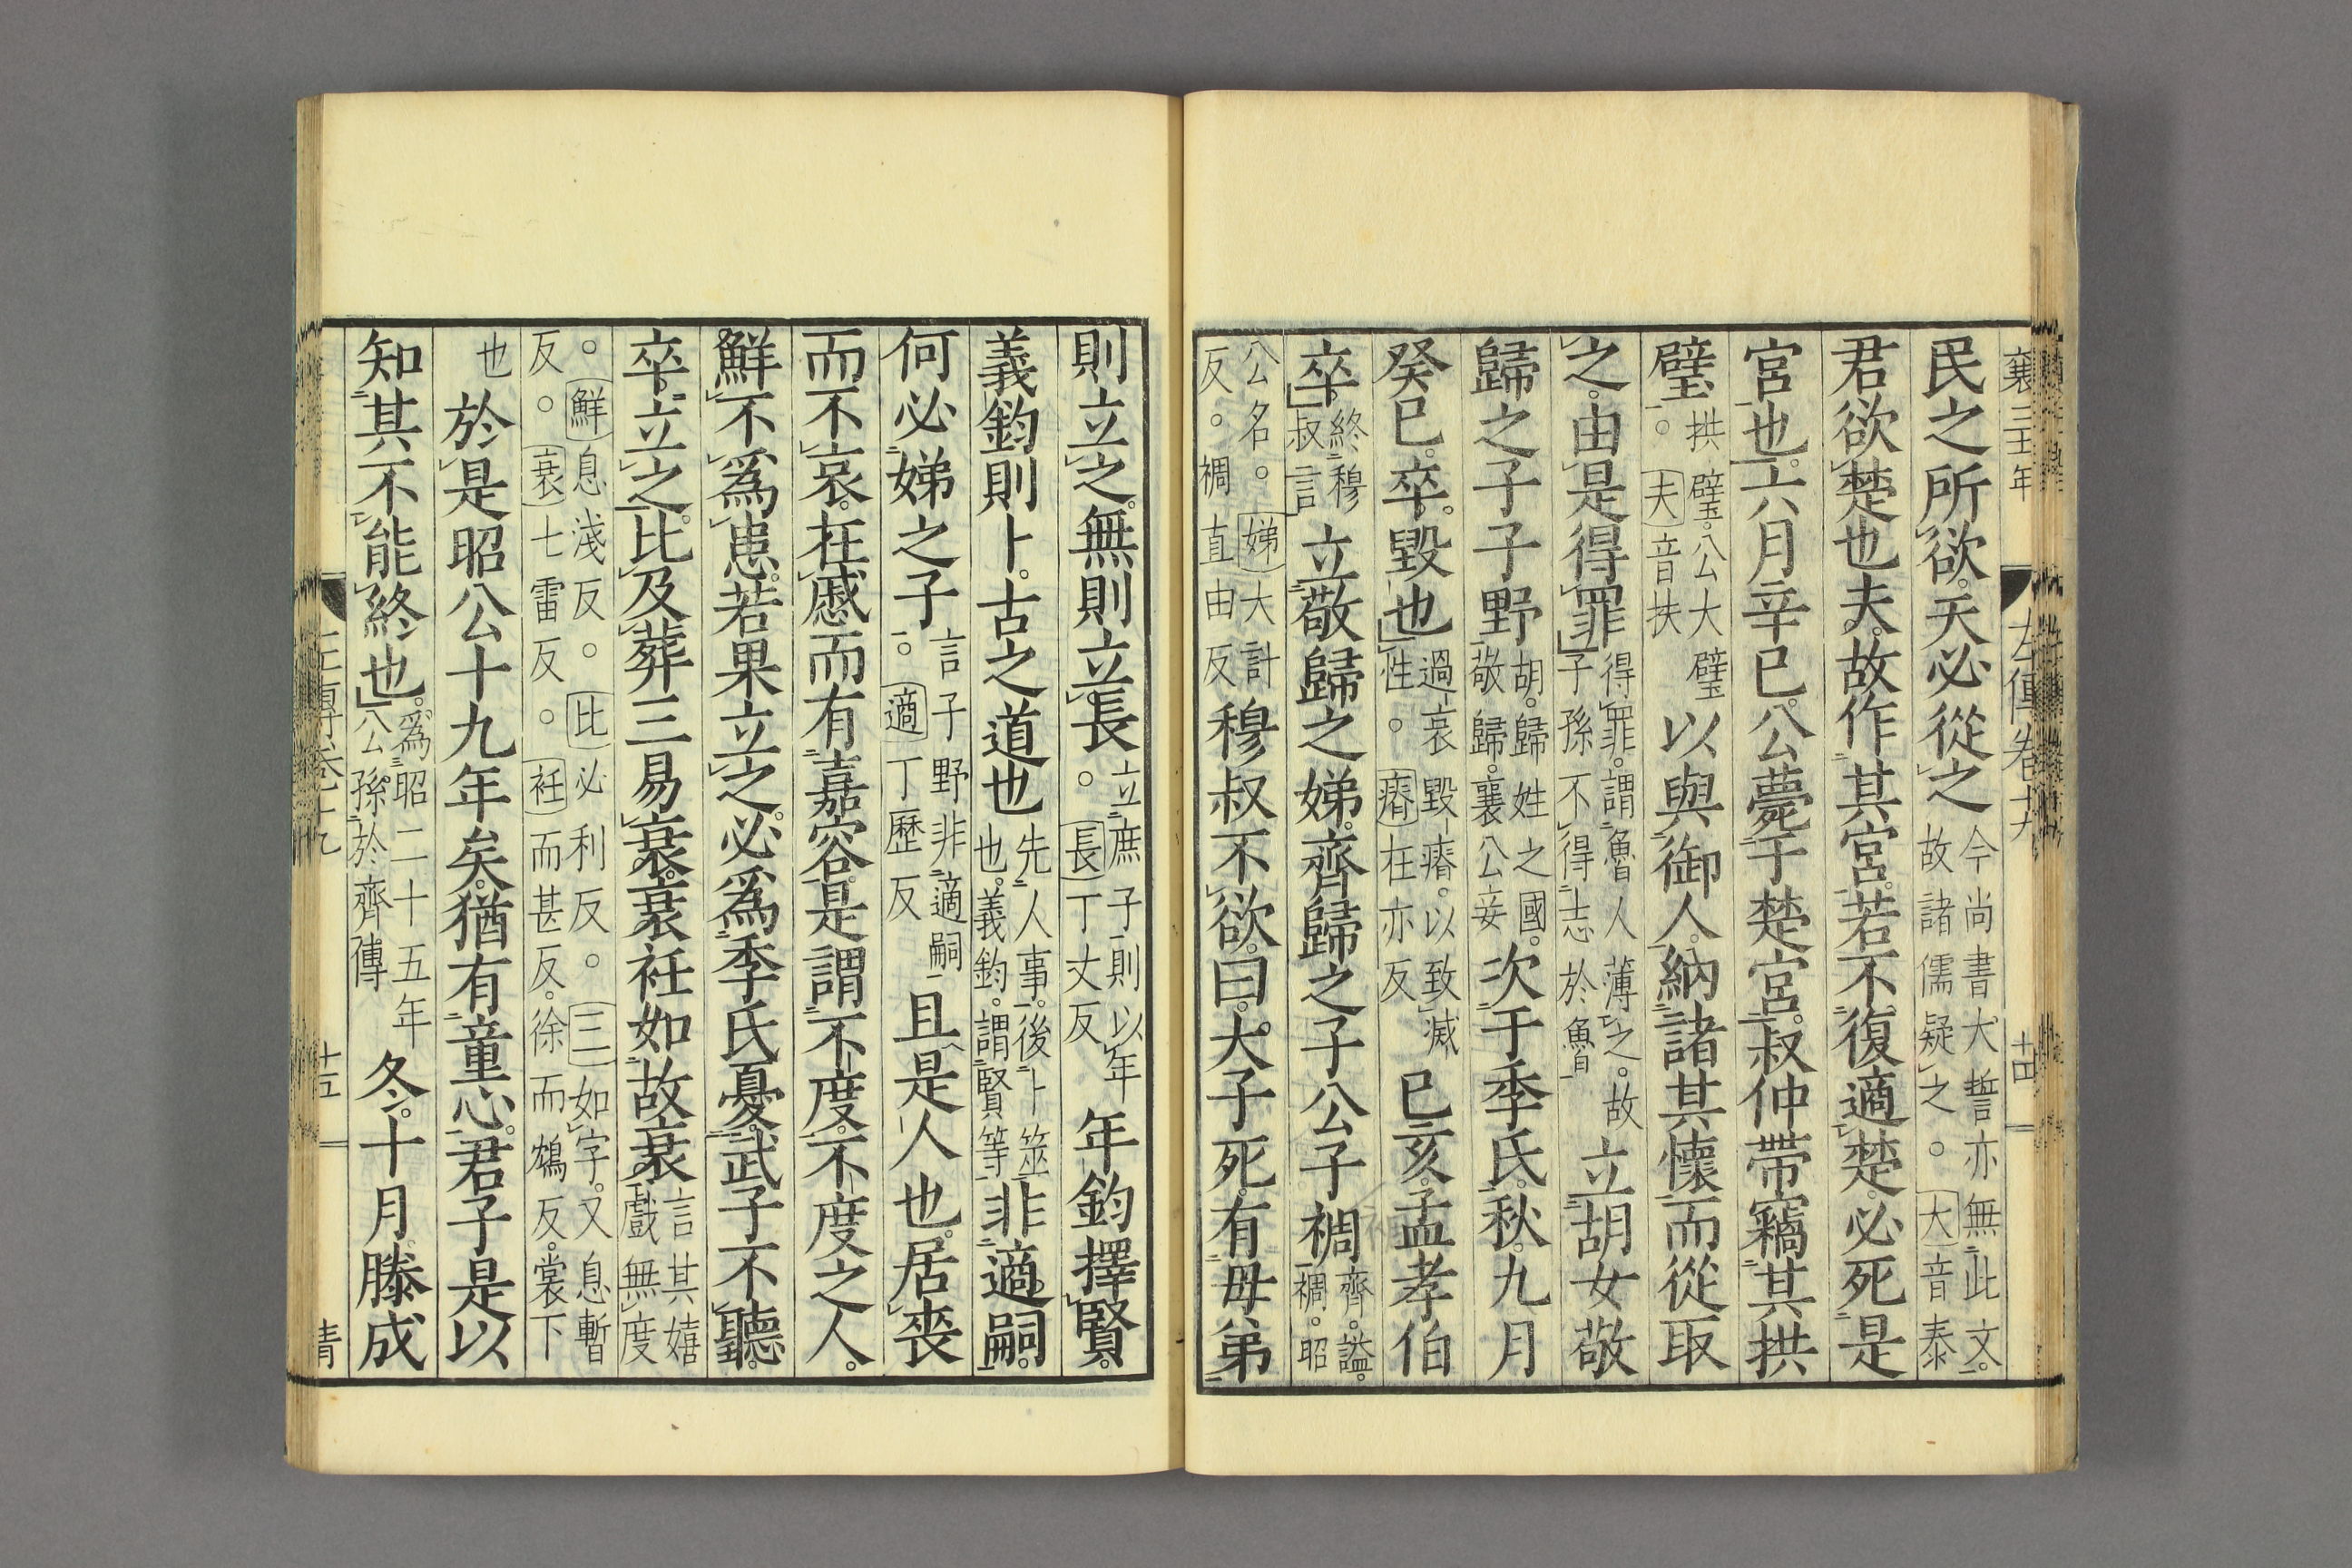 襄三十一年 左傳卷十九 十四
民之所欲。天必從之今尚書大誓亦無此文。故諸儒疑之。大音泰
君欲楚也夫。故作其宮。若不復適楚。必死是
宮也。六月辛巳。公薨于楚宮。叔仲帶竊其拱
璧拱璧。公大璧。夫音扶以與御人。納諸其懷而從取
之。由是得罪得罪。謂魯人薄之。故子孫不得志於魯立胡女敬
歸之子子野胡。歸姓之國。敬歸。襄公妾次于季氏。秋。九月
癸巳。卒。毀也過哀毀瘠。以致滅性。瘠在亦反己亥。孟孝伯
卒。終穆叔言立敬歸之娣。齊歸之子公子裯齊。謚。裯。昭
公名。娣大計反。裯直由反穆叔不欲。曰。大子死。有母弟
則立之。無則立長。立庶子則以年長丁丈反年鈞擇賢。
義鈞則卜。古之道也先人事。後卜筮也。義鈞。謂賢等非適嗣。
何必娣之子言子野非適嗣。適丁歷反且是人也。居喪
而不哀。在慼而有嘉容。是謂不度。不度之人。
鮮不爲患。若果立之。必爲季氏憂。武子不聽。
卒。立之。比及葬三易衰。衰衽如故衰言其嬉戲無度
。鮮息淺反。比必利反。三如字。又息暫反。衰七雷反。衽而甚反。徐而鴆反。裳下
也於是昭公十九年矣。猶有童心。君子是以
知其不能終也。爲昭二十五年公孫於齊傳冬。十月。滕成
左傳卷十九 十五 青